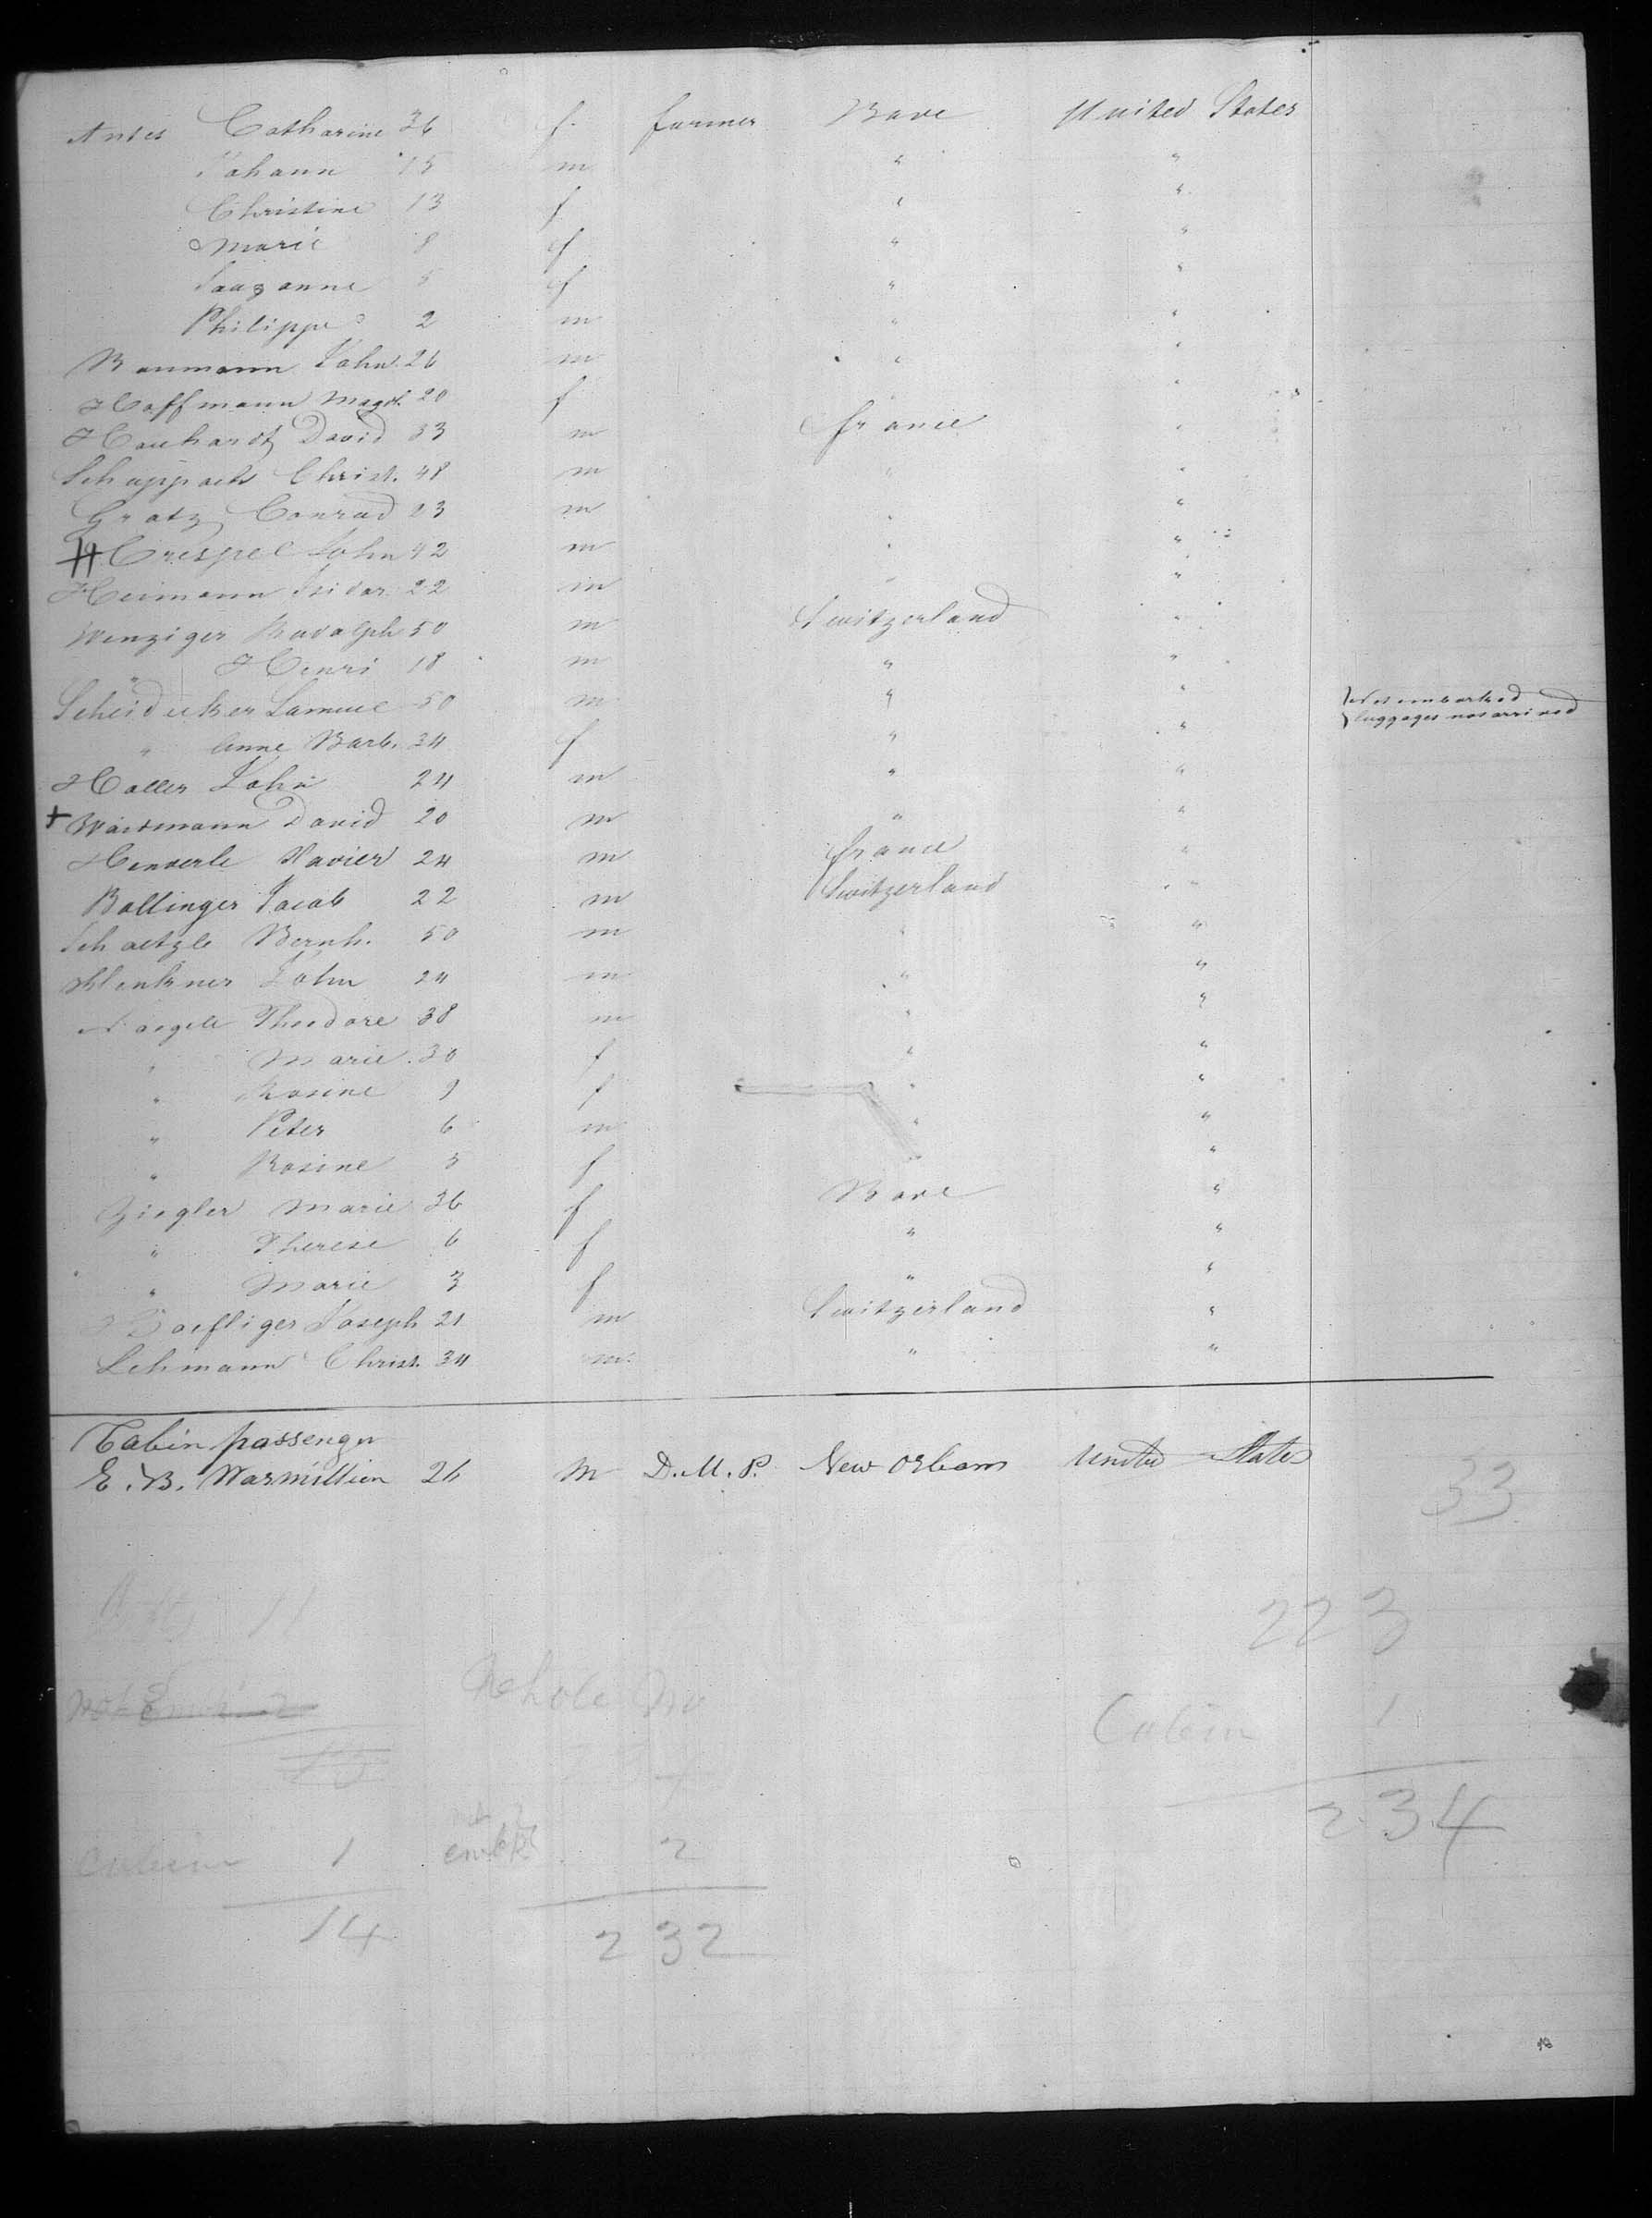 Antes Catharine 36 f. farmer Bave United States
Johann 15 m " "
Christine 13 f " "
Marie 8 f " "
Sauzanne 5 f " "
Philippe 2 m " "
Baumann John 26 m " "
Hoffmann Magd. 20 f "
Hauhardt David 33 m france "
Schuppach Christ. 48 m " "
Gratz Conrad 23 m " "
Crespel John 42 m " "
Heimann Isidor 22 m " "
Wenziger Rudolph 50 m Switzerland "
" Henri 18 m " "
Scheidecker Samuel 50 m " " Not embarked
" Anne Barb. 34 f " " luggages not arrived
Haller John 24 m " "
+ Waidmann David 20 m " "
Henderle Xavier 24 m france "
Bollinger Jacob 22 m Switzerland "
Schaetzle Bernh. 50 m " "
Klenkner John 24 m " "
Naegele Theodore 38 m " "
" Marie 30 f " "
" Rosine 9 f " "
" Peter 6 m " "
" Rosine 3 f " "
Ziegler Marie 36 f Bave "
" Therese 6 f " "
" Marie 3 f " "
Haefliger Joseph 21 m Switzerland "
Lehmann Christ. 34 m " "
Cabin passenger
E. B. Warmillion 26 M D.M.P. New Orleans United States
33
11
223
Whole No
Cabin 1
234
not
Cabin 1 embkd 2
14 232